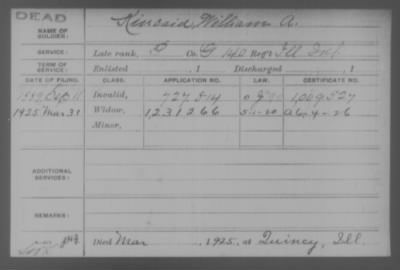 DEAD
NAME OF SOLDIER: Kincaid, William A.
SERVICE: Late rank, P Co. G 140 Reg't Ill Inf.
TERM OF SERVICE: Enlisted , 1 Discharged , 1
DATE OF FILING. CLASS. APPLICATION NO. LAW. CERTIFICATE NO.
Sep 11 Invalid, 727.514 1,069,527
1925 Mar 31 Widow, 1231266 5-1-20 A 6-9-4-26
Minor,
ADDITIONAL SERVICES:
REMARKS:
Died Mar , 1925, at Quincy, Ill.